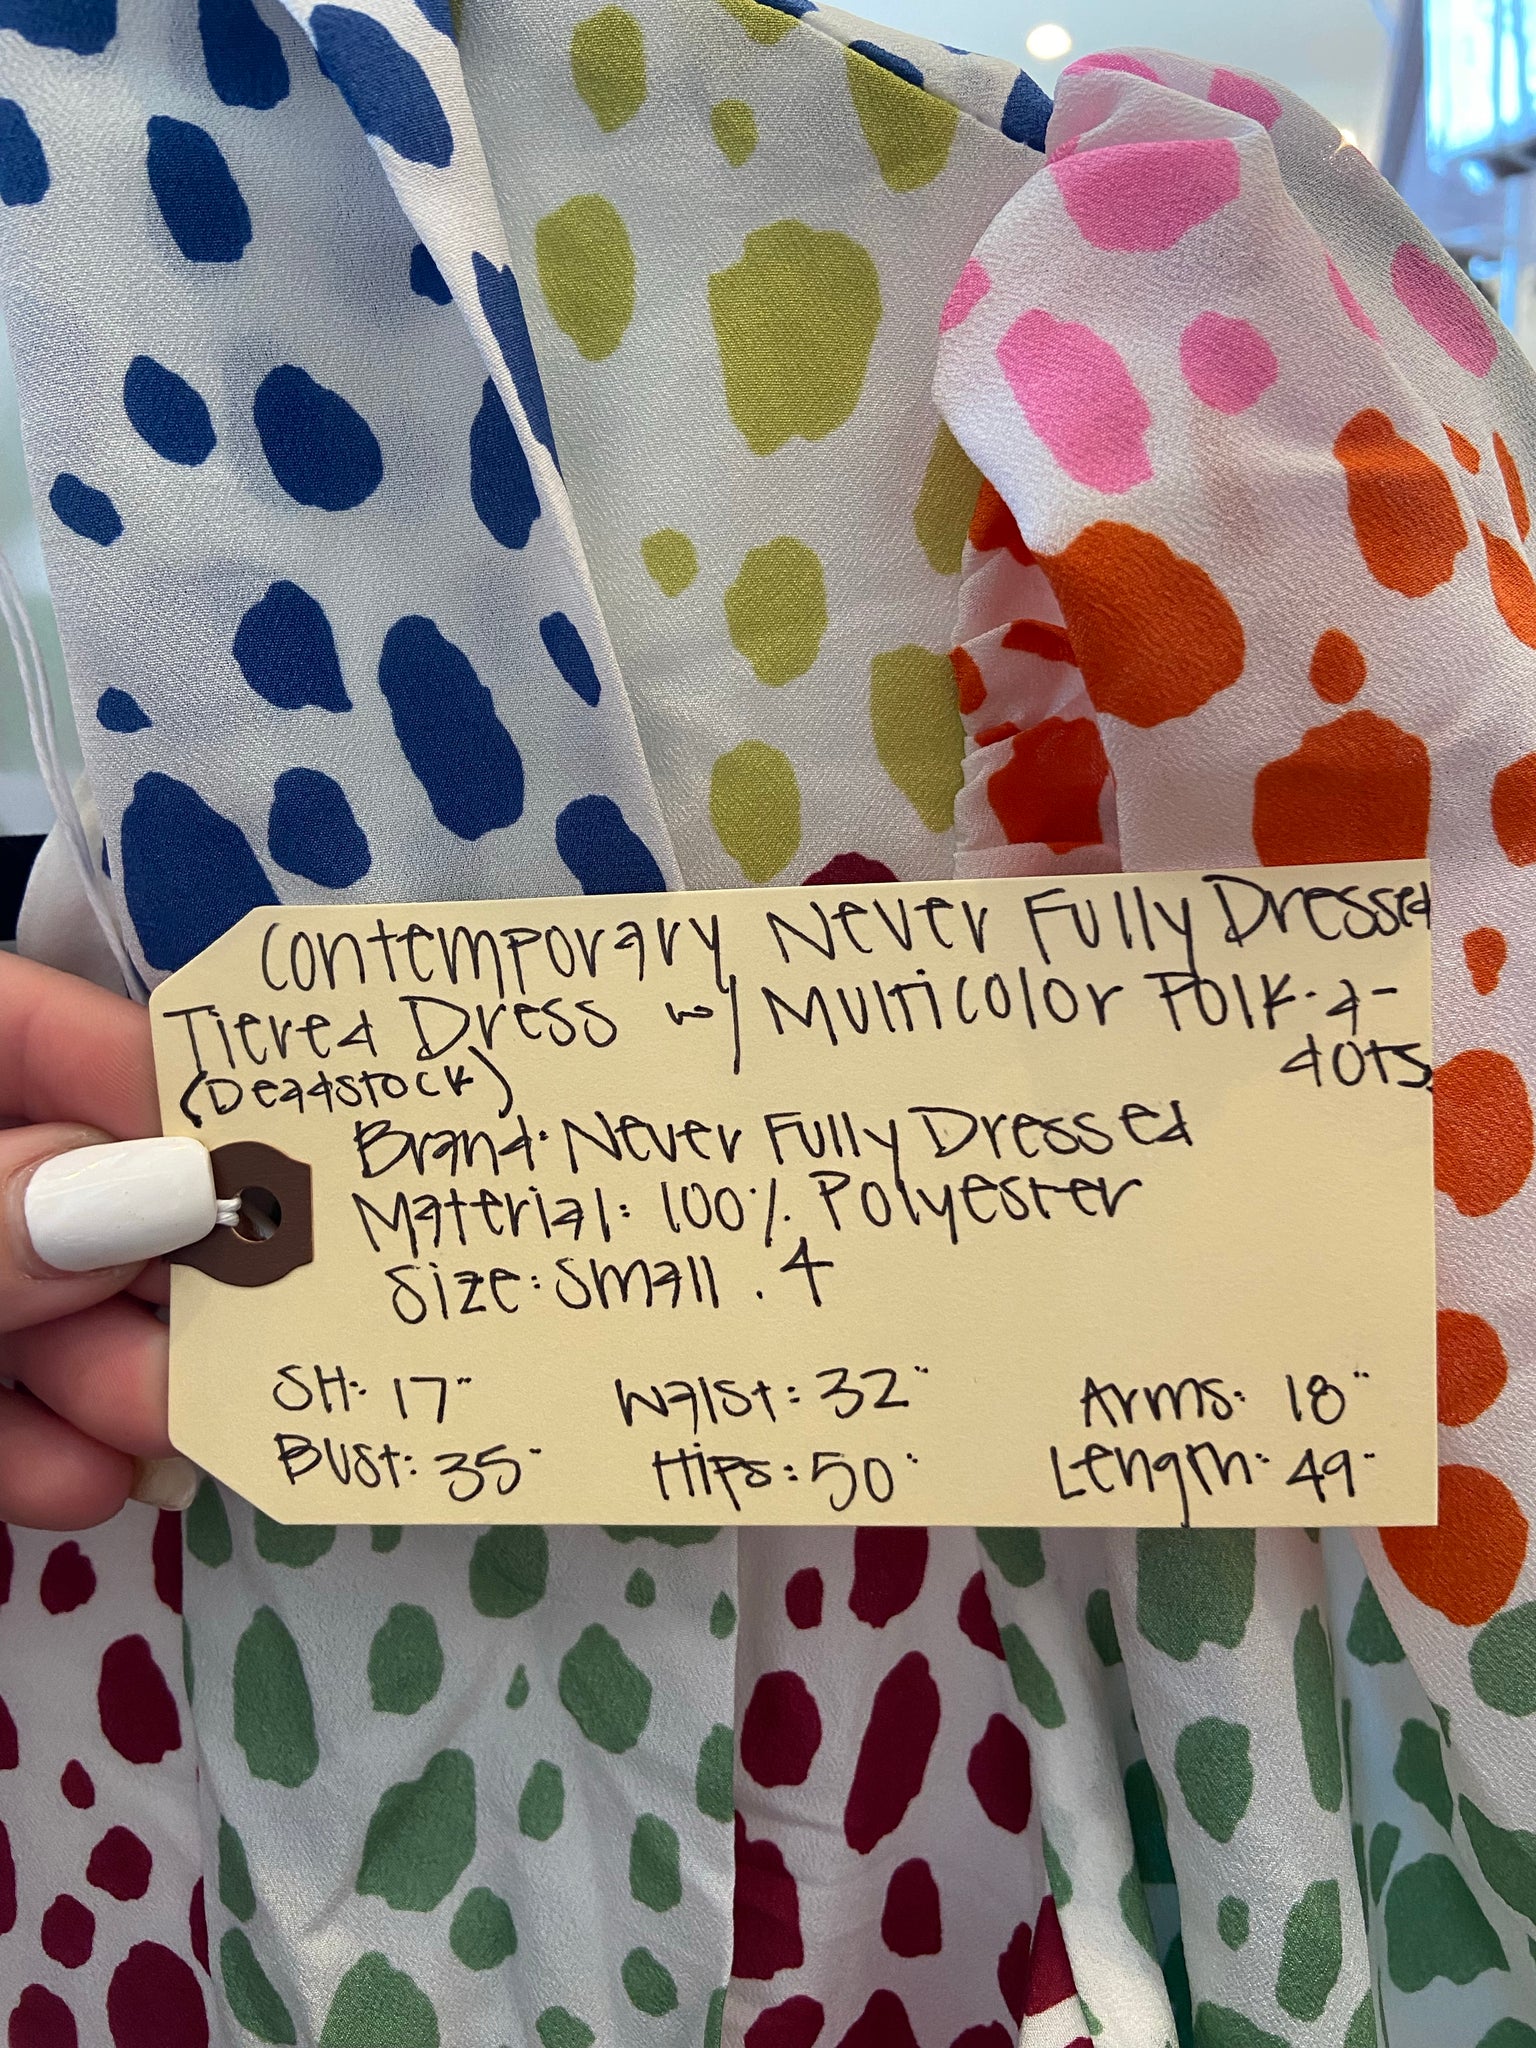 Contemporary Never Fully Dressed
Tiered Dress w/ Multicolor Polk-a-
dots
(Deadstock)
Brand: Never Fully Dressed
Material: 100% Polyester
Size: Small . 4
SH: 17" Waist: 32" Arms: 18"
Bust: 35" Hips: 50" Length: 49"